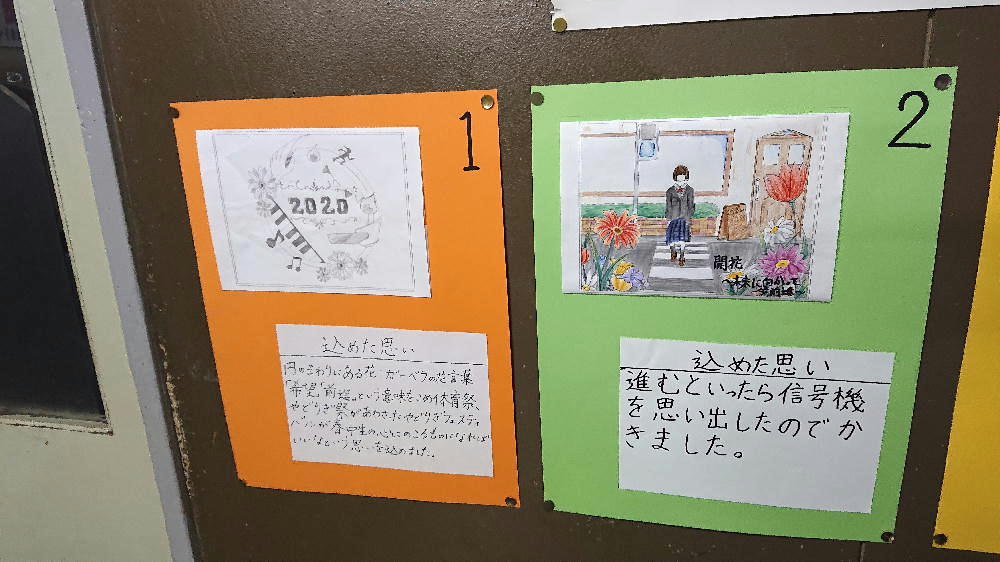 1
2020
込めた思い
円のまわりにある花 ガーベラの花言葉
「希望」「前進」という意味をこめ体育祭、
やどりぎ祭があわさったやどりぎフェスティ
バルが春中生の心にのこるものになれば
いいなという思いを込めました。
2
開花
〜未来に向かって
込めた思い
進むといったら信号機
を思い出したのでか
きました。